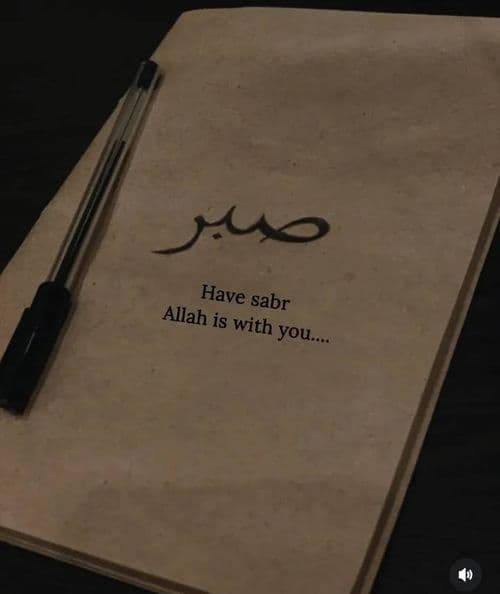 صبر
Have sabr
Allah is with you....